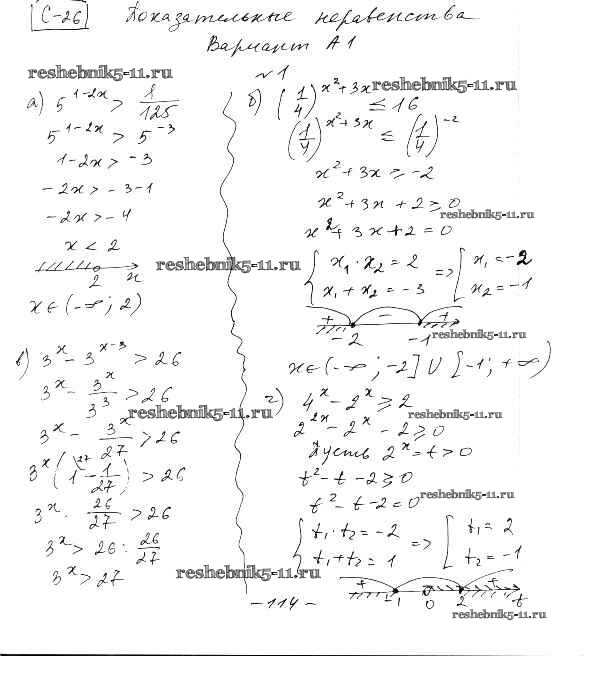 С-26 Показательные неравенства
Вариант А1
reshebnik5-11.ru
№1
а) 5^(1-2x) > 1/125
5^(1-2x) > 5^(-3)
1-2x > -3
-2x > -3-1
-2x > -4
x < 2
reshebnik5-11.ru
2 x
x ∈ (-∞; 2)
б) (1/4)^(x²+3x) ≤ 16
reshebnik5-11.ru
(1/4)^(x²+3x) ≤ (1/4)^(-2)
x²+3x ≥ -2
x²+3x+2 ≥ 0
reshebnik5-11.ru
x²+3x+2=0
{ x₁·x₂=2
x₁+x₂=-3 => [ x₁=-2
x₂=-1
+ - +
-2 -1
reshebnik5-11.ru
x ∈ (-∞; -2] ∪ [-1; +∞)
в) 3^x - 3^(x-3) > 26
3^x - 3^x/3^3 > 26
reshebnik5-11.ru
3^x - 3^x/27 > 26
3^x (1\27 - 1/27) > 26
3^x · 26/27 > 26
3^x > 26 : 26/27
3^x > 27
reshebnik5-11.ru
г) 4^x - 2^x ≥ 2
reshebnik5-11.ru
2^(2x) - 2^x - 2 ≥ 0
Пусть 2^x = t > 0
t² - t - 2 ≥ 0
t² - t - 2 = 0
reshebnik5-11.ru
{ t₁·t₂=-2
t₁+t₂=1 => [ t₁=2
t₂=-1
+ - +
-1 0 2 t
-114-
reshebnik5-11.ru